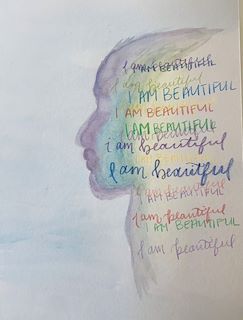 I AM BEAUTIFUL
i am beautiful
I AM BEAUTIFUL
I AM BEAUTIFUL
I AM BEAUTIFUL
i am beautiful
I am beautiful
I AM BEAUTIFUL
I am beautiful
I AM BEAUTIFUL
I am beautiful